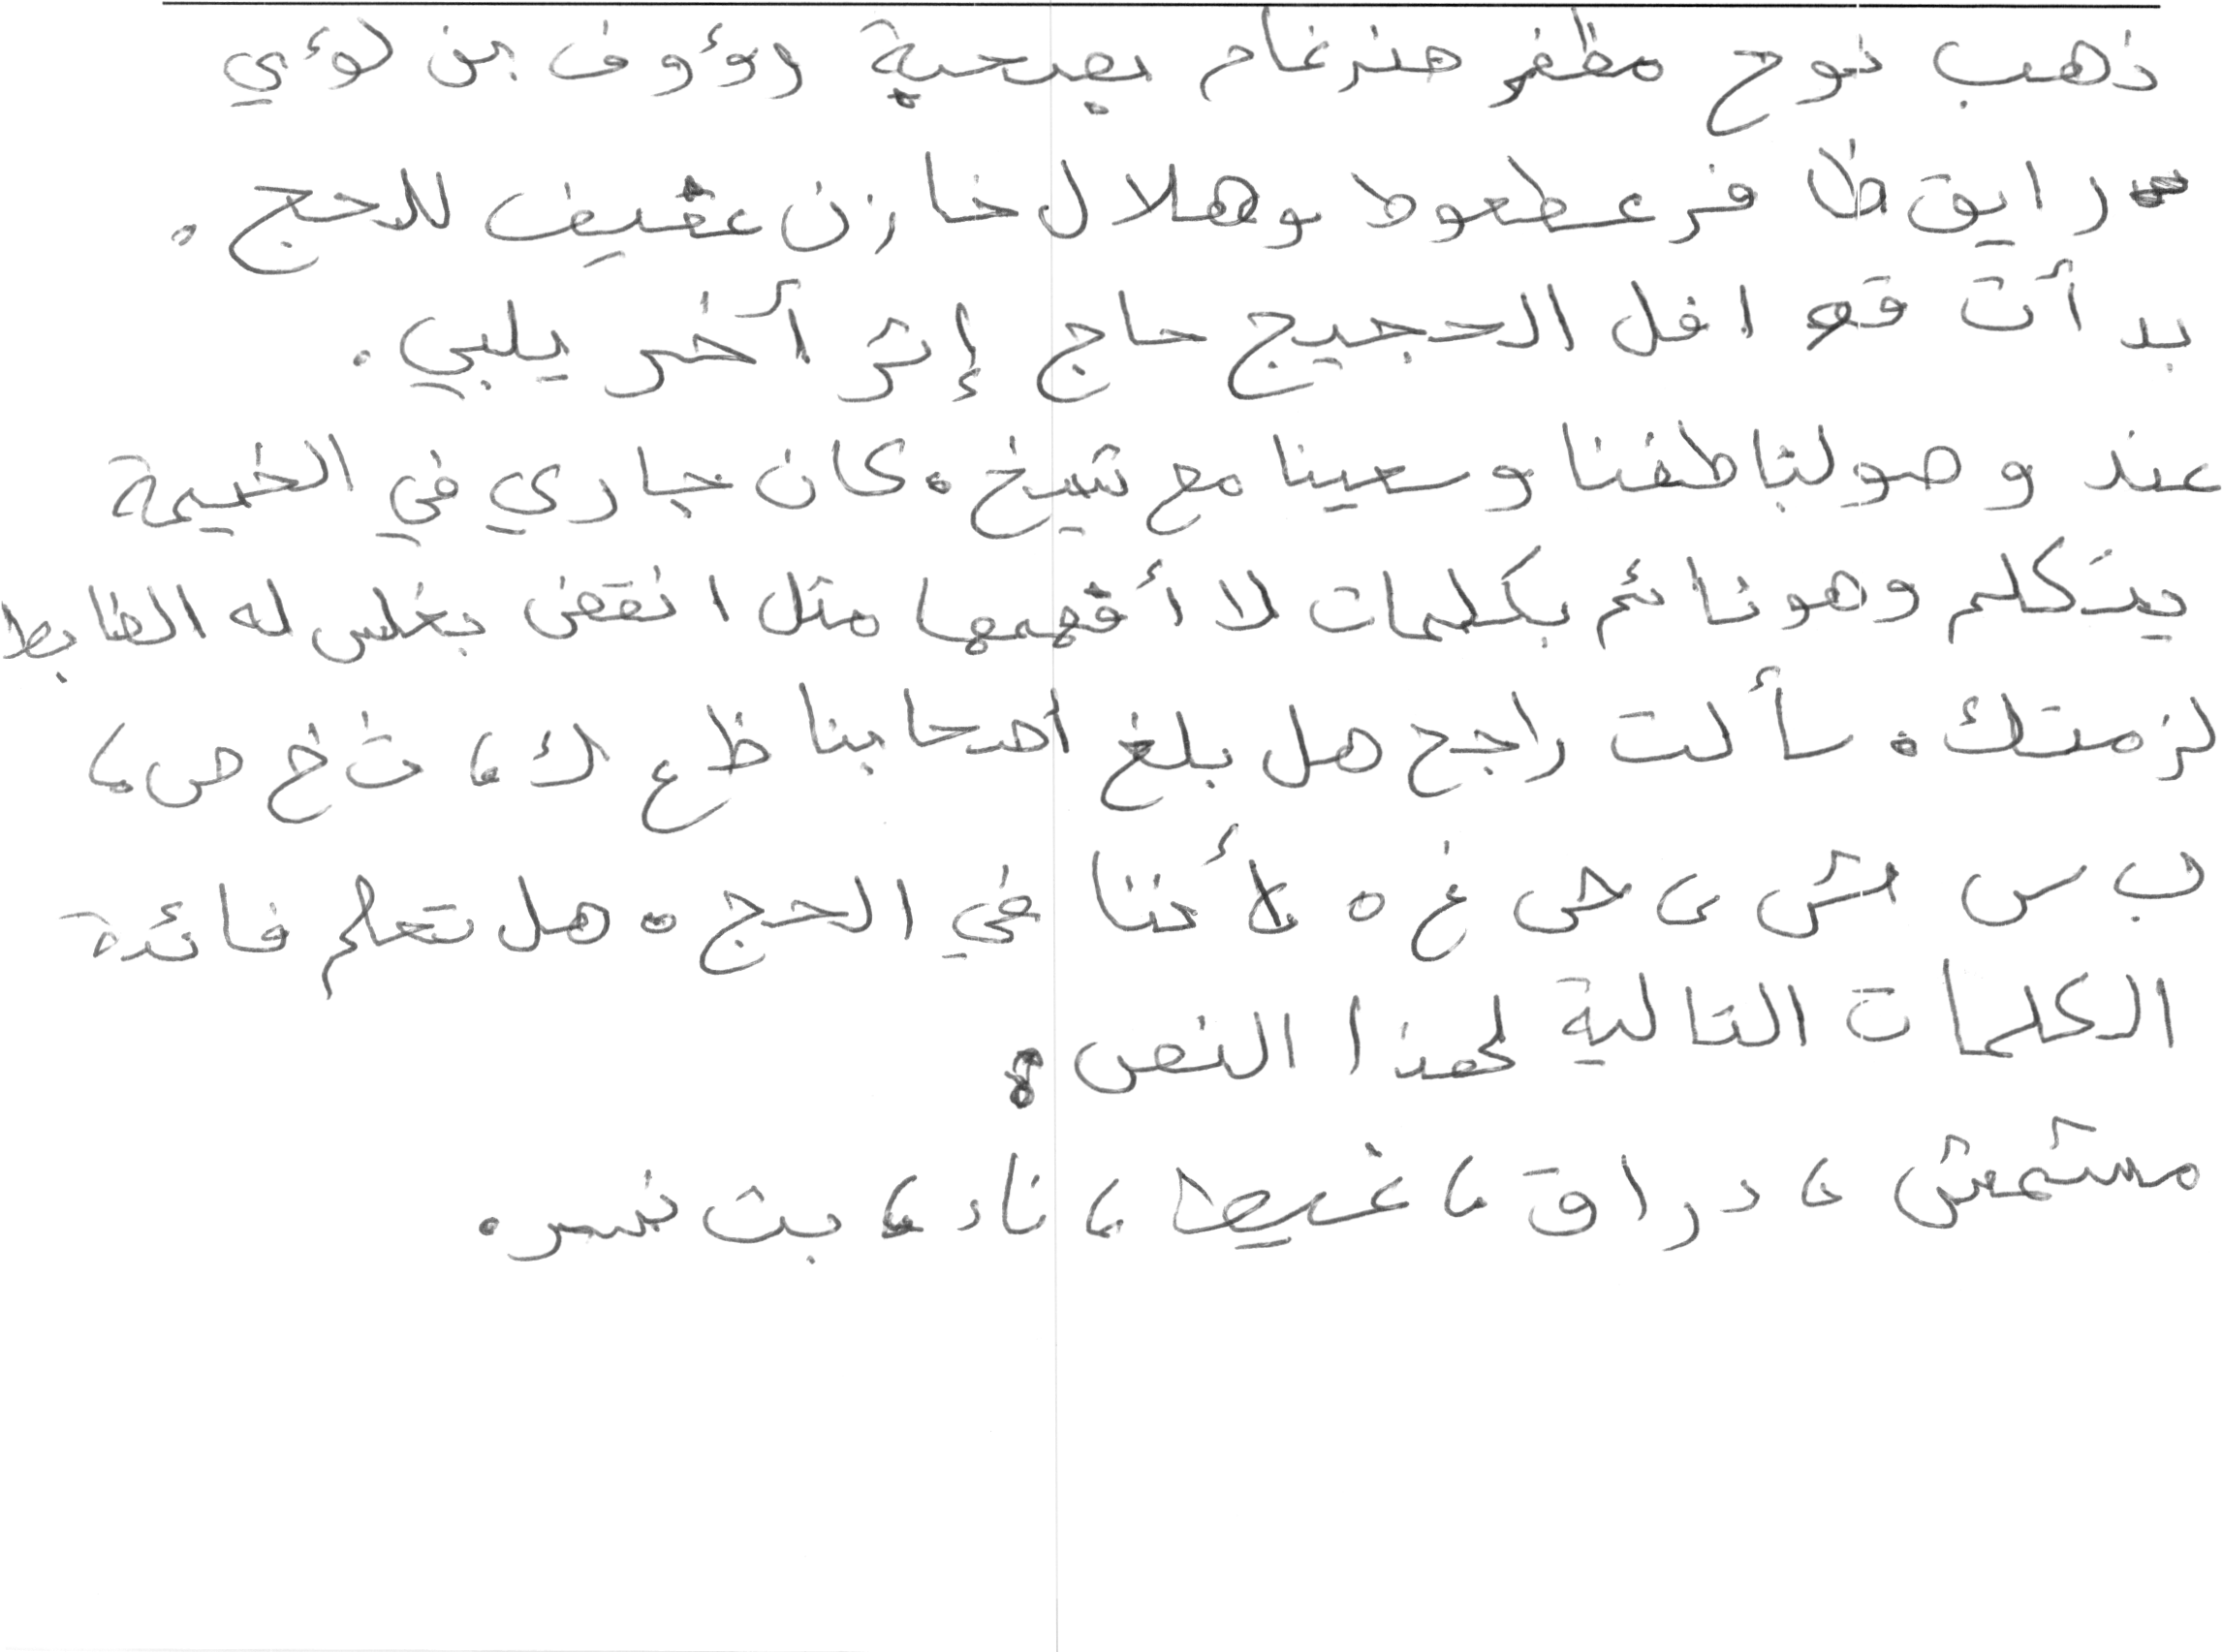 ذهب نوح مظفر ضرغام بصحبة رؤوف بن لؤي
رايق ظافر عطعوط وهلال خازن عفيف للحج .
بدأت قوافل الحجيج حاج إثر آخر يلبي .
عند وصولنا طفنا وسعينا مع شيخ . كان جاري في الخيمة
يتكلم وهو نائم بكلمات لا أفهمها مثل انقض بغلس له الضابط
لزمتك . سألت راجح هل بلغ أصحابنا ظ ع ك ، ث خ ص ،
ب س ش ، ض غ . لأننا في الحج . هل تعلم فائدة
الكلمات التالية لهذا النص ؟
مستمش ، دراق ، غيط ، ناد ، بث نمر .